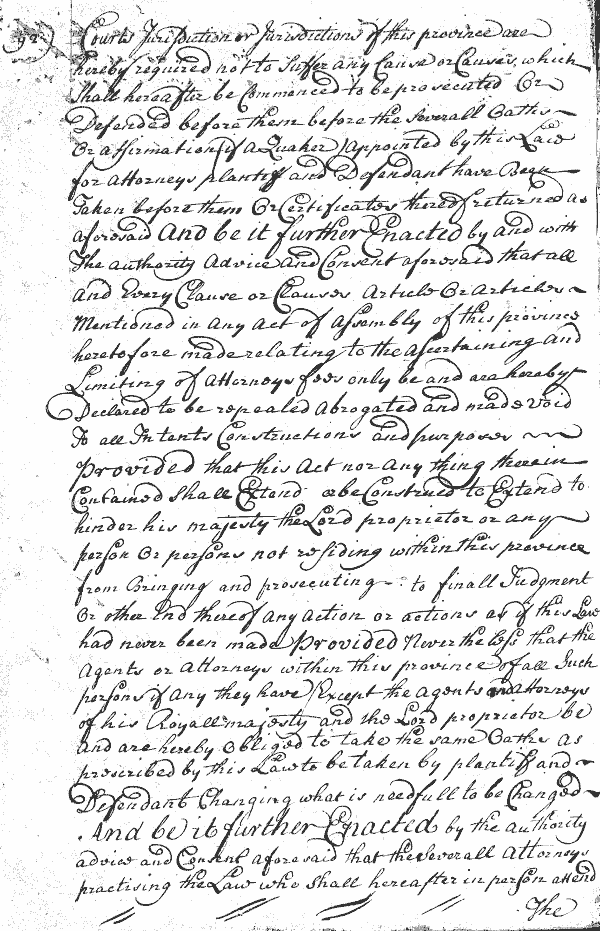 92
Courts Jurisdiction or Jurisdictions of this province are
hereby required not to Suffer any Cause or Causes which
Shall hereafter be Commenced to be prosecuted Or
Defended before them before the Severall Oaths
Or affirmation (if a Quaker) appointed by this Law
for Attorneys plantiff and Defendant have Been
Taken before them Or Certificates thereof returned as
aforesaid And be it further Enacted by and with
The authority Advice and Consent aforesaid that all
and Every Clause or Clauses Article Or Articles
Mentioned in any act of Assembly of this province
heretofore made relating to the ascertaining and
Limiting of Attorneys fees only be and are hereby
Declared to be repealed abrogated and made void
To all Intents Constructions and purposes
Provided that this Act nor any thing therein
Contained Shall Extend or be Construed to Extend to
hinder his majesty the Lord proprietor or any
person Or persons not residing within this province
from Bringing and prosecuting to finall Judgment
Or other End thereof any action or actions as if this Law
had never been made Provided Nevertheless that the
Agents or Attorneys within this province of all Such
persons if any they have (Except the Agents and Attorneys
of his Royall majesty and the Lord proprietor be
and are hereby obliged to take the same Oaths as
prescribed by this Law to be taken by plantiff and
Defendant Changing what is needfull to be Changed
And be it further Enacted by the authority
advice and Consent aforesaid that the Severall Attorneys
practising the Law who Shall hereafter in person attend
The